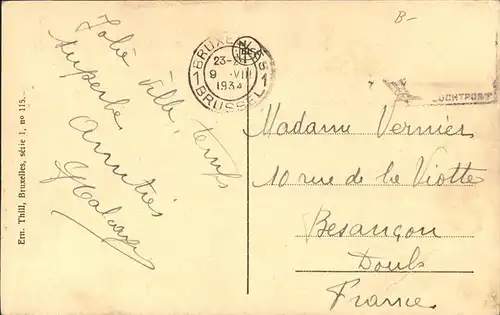 B-
Jolie ville, temps
superbe
Amitiés
BRUXELLES
23-
9 VIII
1934
1 BRUSSEL 1
LUCHTPOST
Madame Vernier
10 rue de la Viotte
Besançon
Doubs
France
Ern. Thill, Bruxelles, série 1, nº 115.